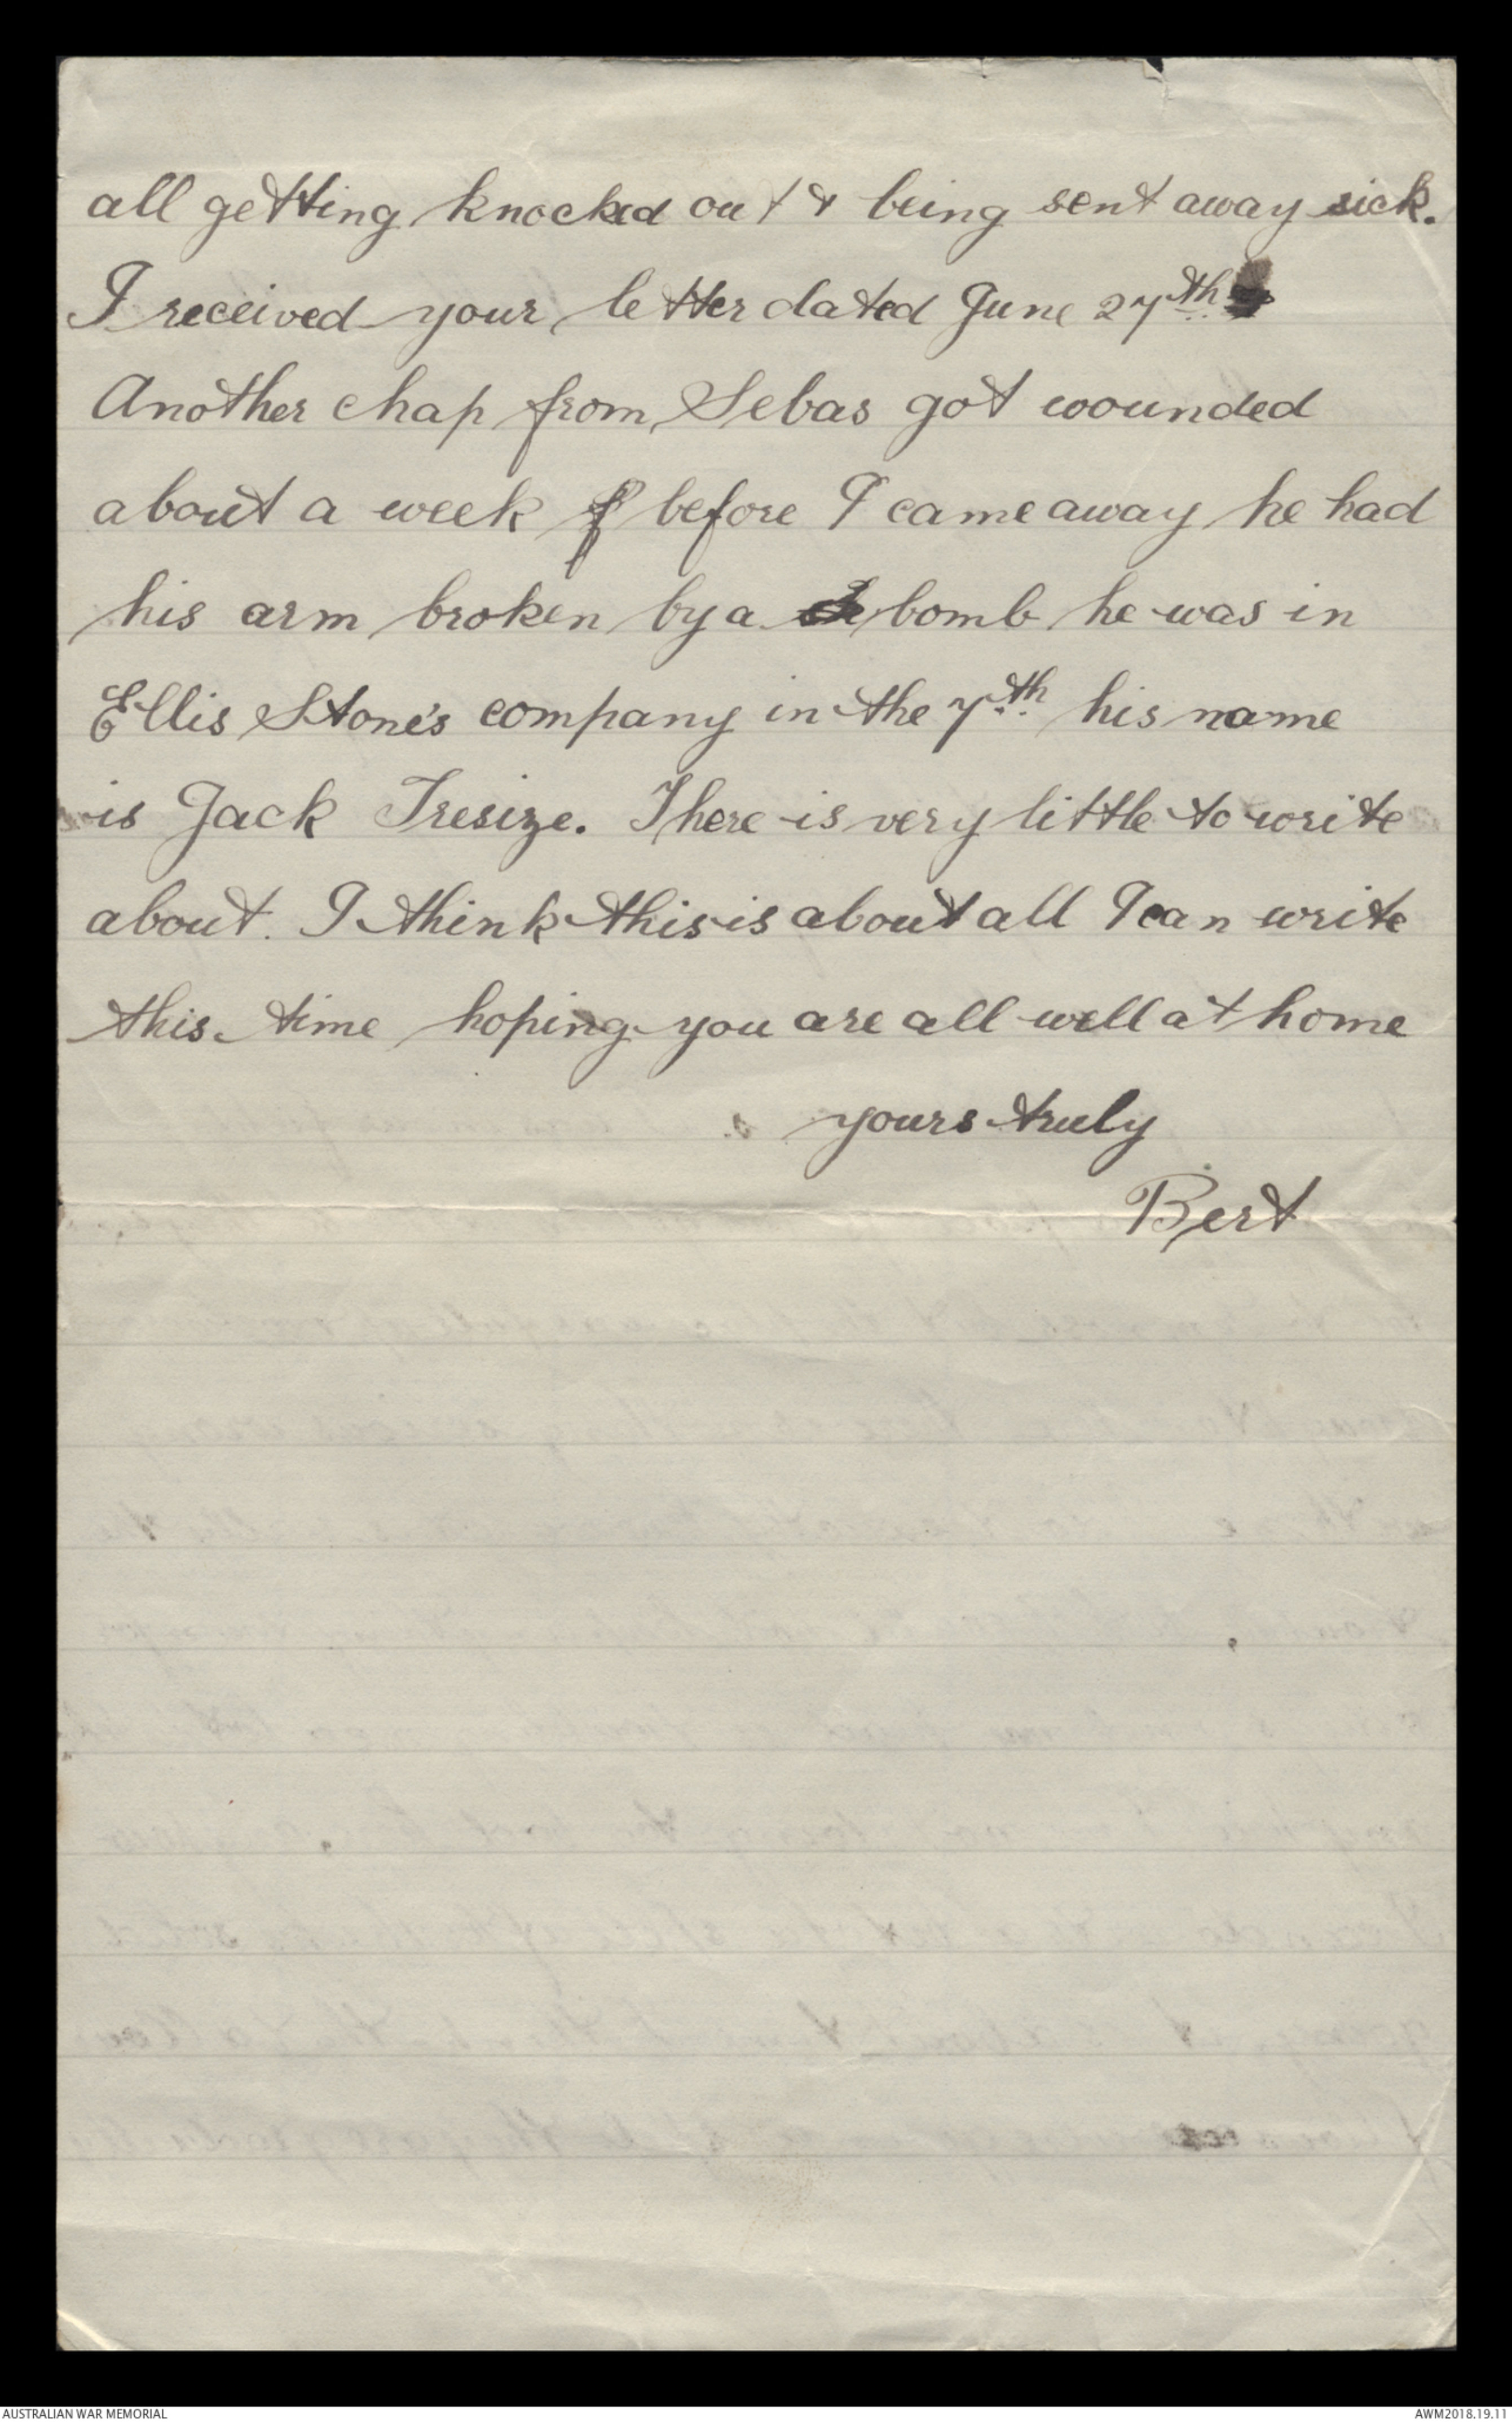 all getting knocked out & being sent away sick.
I received your letter dated June 27th
Another chap from Sebas got wounded
about a week before I came away he had
his arm broken by a bomb he was in
Ellis Stone's company in the 7th his name
is Jack Tresize. There is very little to write
about. I think this is about all I can write
this time hoping you are all well at home
yours truly
Bert
AUSTRALIAN WAR MEMORIAL
AWM2018.19.11